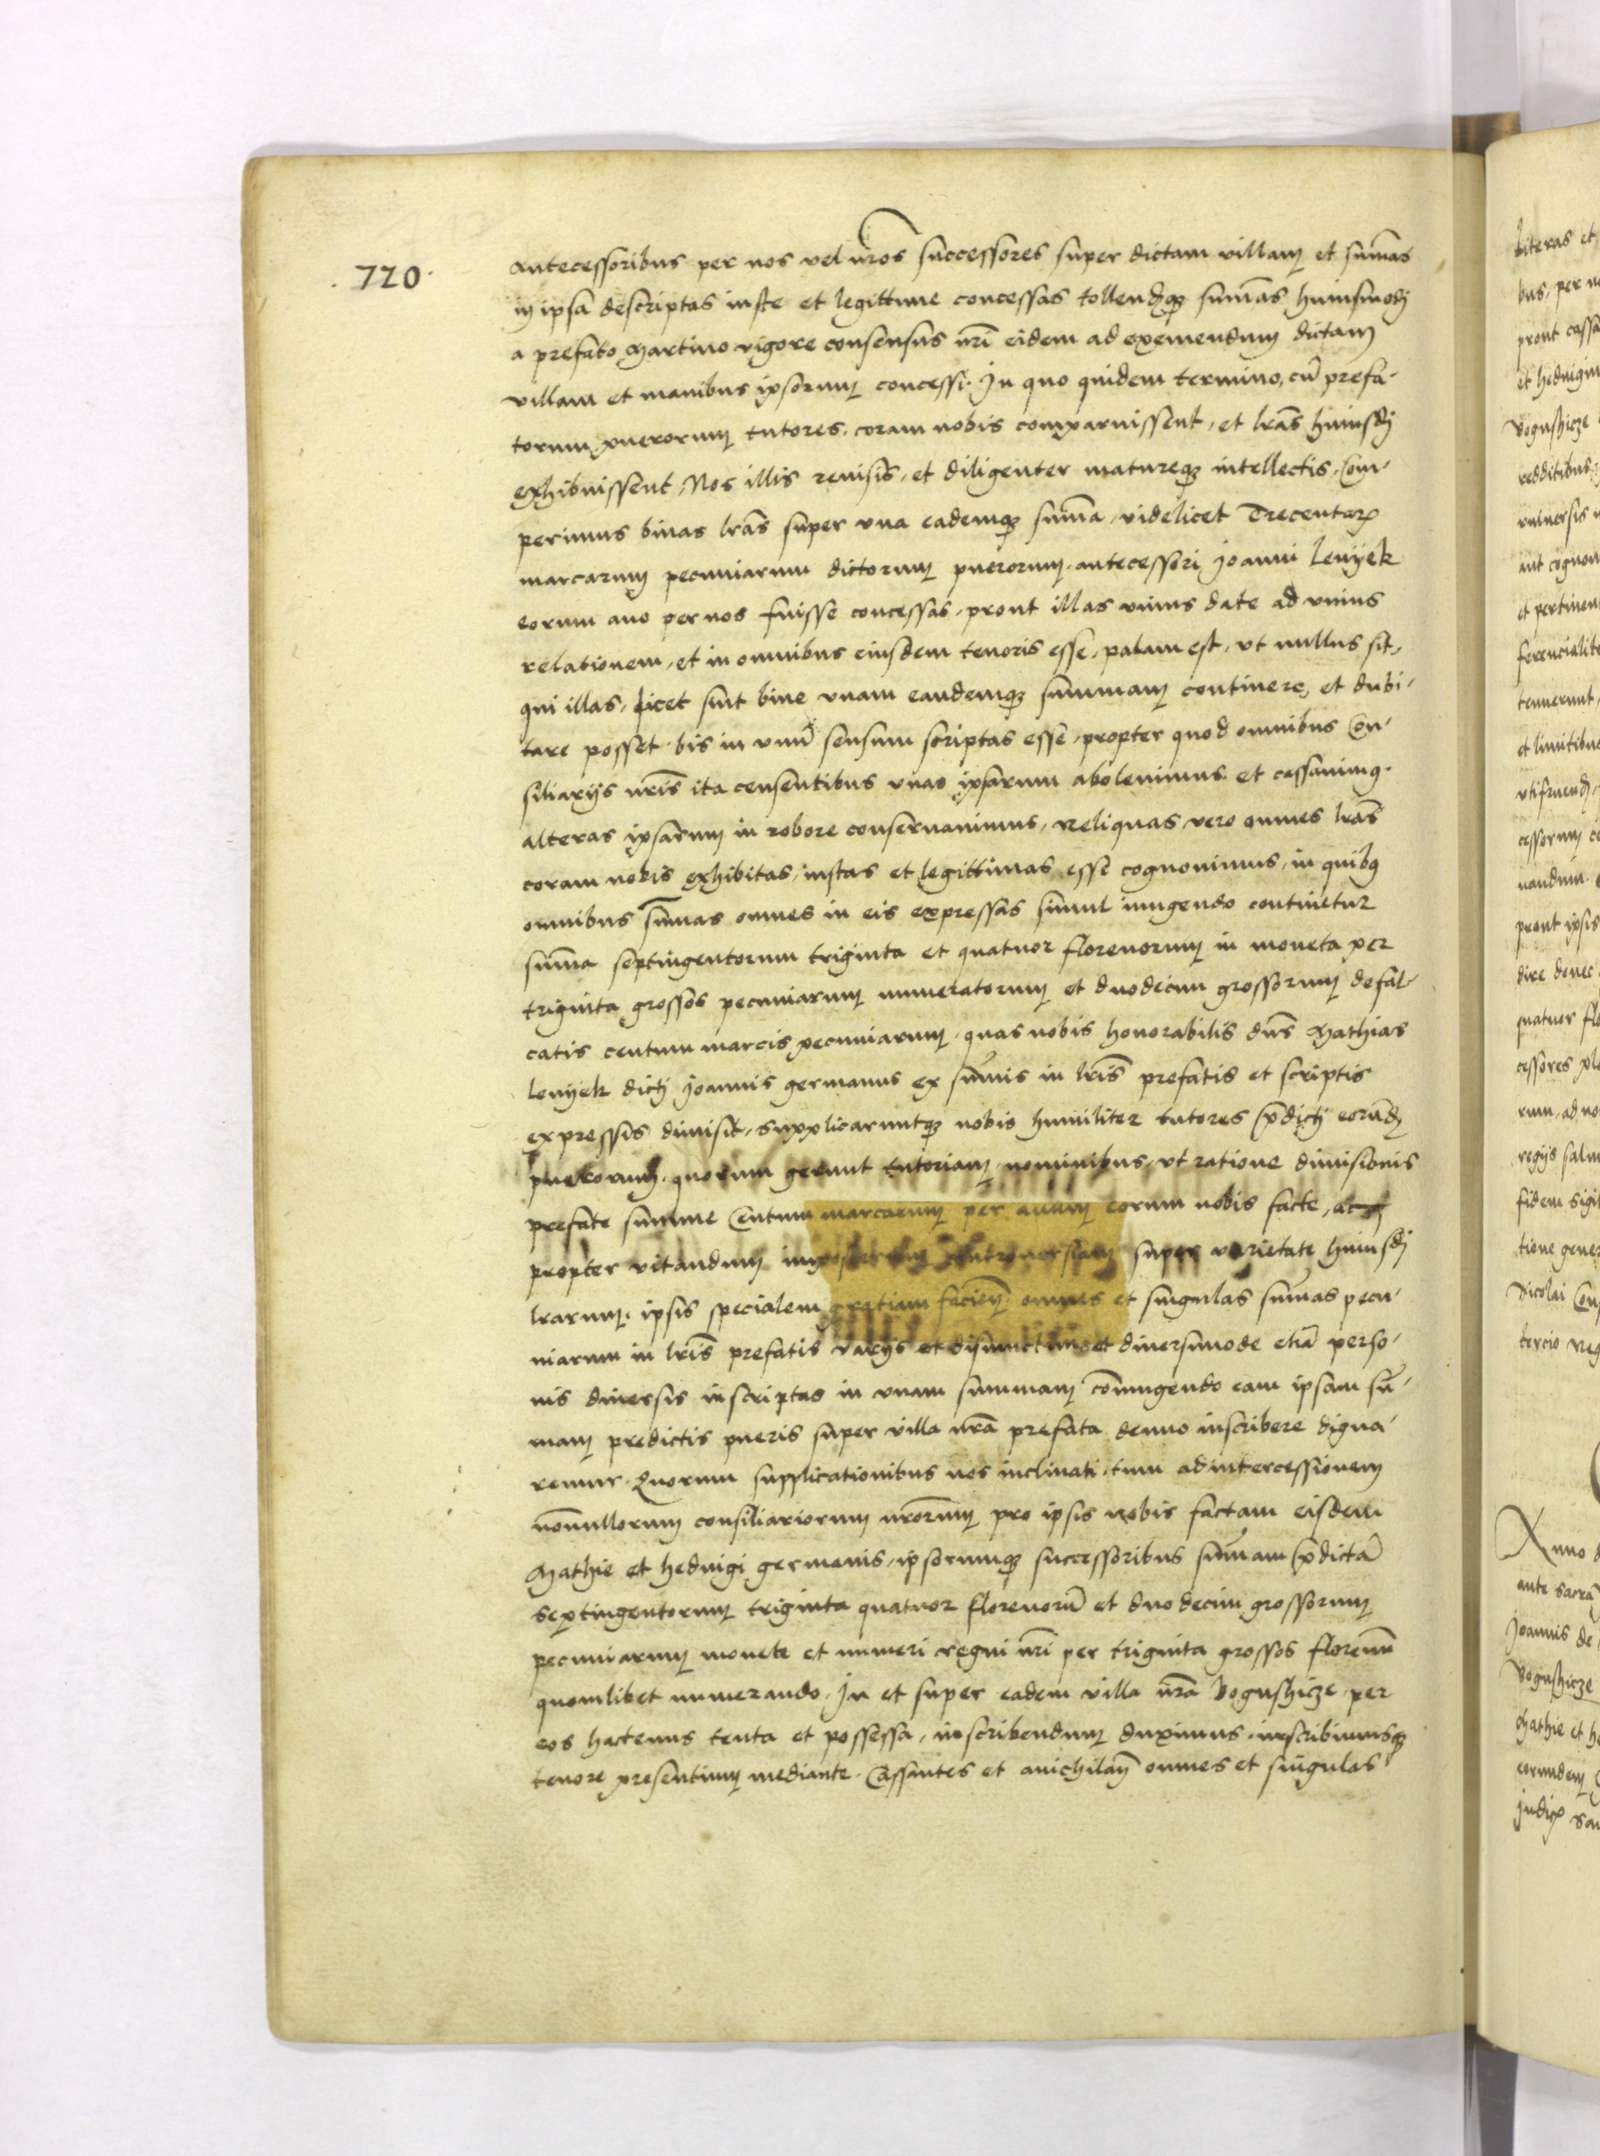 720
antecessoribus per nos vel nr̃os successores super dictam villam et sum̃as
in ipsa descriptas iuste et legittime concessas tollendq; sum̃as huiusmodj
a prefato Martino vigore consensus nr̃i eidem ad exemendum dictam
villam et manibus ipsorum concessi. In quo quidem termino, cũ prefa-
torum puerorum tutores. coram nobis comparuissent, et lr̃as huiusdj
exhibuissent, Nos illis reuisis, et diligenter matureq; intellectis, Com-
perimus binas lr̃as super vna eademq; sum̃a, videlicet Trecentarꝝ
marcarum pecuniarum dictorum puerorum. antecessori Joanni Lenyek
eorum auo per nos fuisse concessas, prout illas vnius date ad vnius
relationem, et in omnibus eiusdem tenoris esse, palam est, vt nullus sit,
qui illas, licet sint bine vnam eandemq; summam continere, et dubi-
tare posset bis in vnũ sensum scriptas esse, propter quod omnibus Con-
siliarijs nr̃is ita censentibus vnas ipsarum aboleuimus et cassauimꝰ.
alteras ipsarum in robore conseruauimus, Reliquas vero omnes lr̃as
coram nobis exhibitas, iustas et legittimas esse cognouimus, in quibꝰ
omnibus sum̃as omnes in eis expressas simul iungendo continetur
sum̃a septingentorum triginta et quatuor florenorum in moneta per
triginta grossos pecuniarum numeratorum et duodecim grossorum defal-
catis centum marcis pecuniarum. quas nobis honorabilis dñs Mathias
Lenyek dictj Joannis germanus ex sum̃is in lr̃is prefatis et scriptis
expressis dimisit, supplicaruntq; nobis humiliter tutores p̃dictj eorũdẽ
puerorum, quorum gerunt tutoriam, nominibus, vt ratione dimisionis
prefate summe Centum marcarum per auum eorum nobis facte, ac
propter vitandum imposterum controuersiam super varietate huiusdj
lrarum. ipsis specialem gratiam faciẽn. omnes et singulas sum̃as pecu-
niarum in lr̃is prefatis varijs et disiunctim et diuersimode etiã perso-
nis diuersis inscriptas in vnam summam coniungendo eam ipsam sũ-
mam predictis pueris super villa nr̃a prefata denuo inscribere digna-
remur. Quorum supplicationibus nos inclinati, tum ad intercessionem
nonnullorum consiliariorum nr̃orum pro ipsis nobis factam eisdem
Mathie et Heduigi germanis, ipsorumq; successoribus sum̃am p̃dictã
septingentorum triginta quatuor florenorũ et duodecim grossorum
pecuniarum monete et numeri regni nr̃i per triginta grossos florenũ
quemlibet numerando. In et super eadem villa nr̃a Bogushicze per
eos hactenus tenta et possessa, inscribendum duximus. inscribimusq;
tenore presentium mediante. Cassantes et anichilañ omnes et singulas